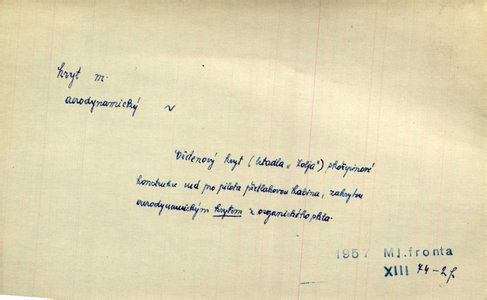 kryt m.
aerodynamický v
Vřetenový kryt (letadla „Zolja") skořepinové
konstrukce má pro pilota přetlakovou kabinu, zakrytou
aerodynamickým krytem z organického skla.
1957 Ml. fronta
XIII 74-2/